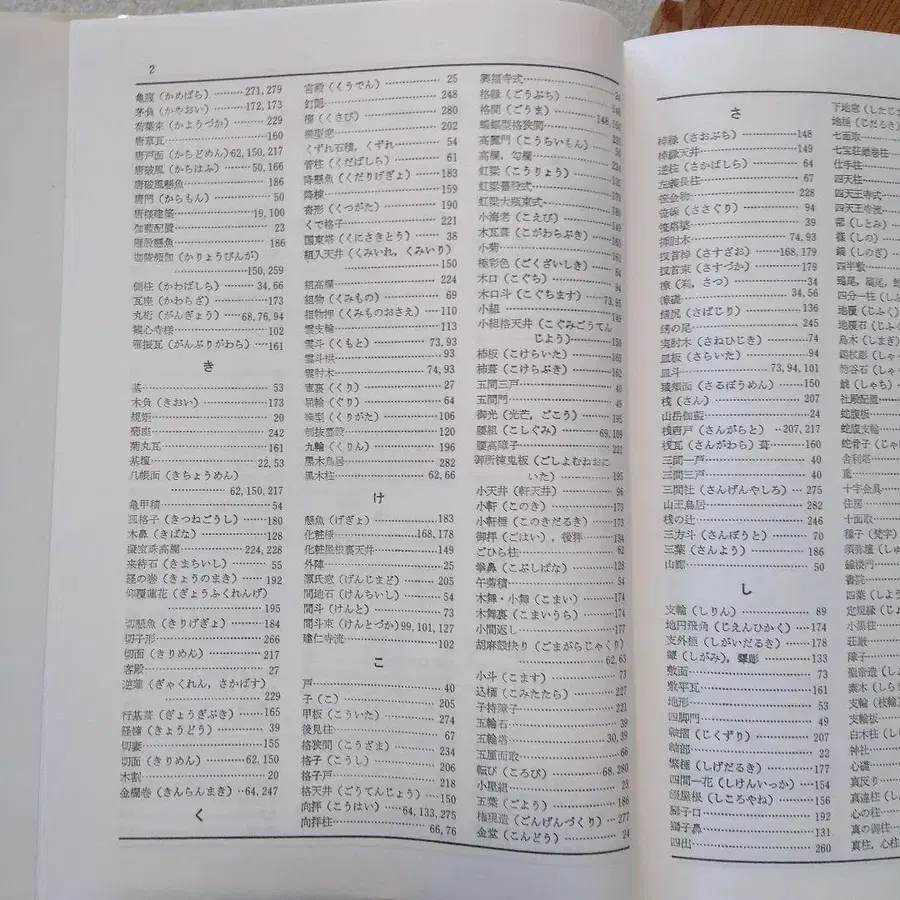 2
亀腹（かめばら）………271,279
茅負（かやおい）………172,173
荷葉束（かようづか）………229
唐草瓦………160
唐戸面（からどめん）62,150,217
唐破風（からはふ）…50,166
唐破風懸魚………186
唐門（からもん）………50
唐様建築………19,100
伽藍配置………23
雁股懸魚………186
迦陵頻伽（かりょうびんが）
………150,259
側柱（かわばしら）………34,66
瓦座（かわらざ）………173
丸桁（がんぎょう）……68,76,94
観心寺様………102
雁振瓦（がんぶりがわら）…161
き
基………53
木負（きおい）………173
規矩………20
菊座………242
菊丸瓦………161
基壇………22,53
几帳面（きちょうめん）
………62,150,217
亀甲積………54
狐格子（きつねごうし）……180
木鼻（きばな）………128
擬宝珠高欄………224,228
来待石（きまちいし）………55
経の巻（きょうのまき）……192
仰覆蓮花（ぎょうふくれんげ）
………195
切懸魚（きりげぎょ）………184
切子形………266
切面（きりめん）………217
客殿………27
逆蓮（ぎゃくれん，さかばす）
………229
行基葺（ぎょうぎぶき）……165
経楼（きょうどう）………39
切妻………155
切面（きりめん）………62,150
木割………20
金襴巻（きんらんまき）…64,247
く
宮殿（くうでん）………25
釘隠………248
楔（くさび）………280
くずれ石積，くずれ………54
管柱（くだばしら）………61
降懸魚（くだりげぎょ）……183
降棟………159
沓形（くつがた）………190
くで格子………221
国東塔（くにさきとう）……38
組入天井（くみいれ，くみいり）
………150
組高欄………224
組物（くみもの）………69
組物押（くみものおさえ）…110
雲支輪………113
雲斗（くもと）………73,93
雲斗栱………93
雲肘木………74,93
庫裏（くり）………27
刳型（くりがた）………106
刳抜蟇股………120
九輪（くりん）………196
黒木鳥居………282
黒木柱………62,66
け
懸魚（げぎょ）………183
化粧棰………168,178
化粧屋根裏天井………149
外陣………25
源氏窓（げんじまど）………205
間地石（けんちいし）………54
間斗（けんと）………73
間斗束（けんとづか）99,101,127
建仁寺流………102
こ
戸………40
子（こ）………205
甲板（こういた）………274
後見柱………67
格狭間（こうざま）………234
格子（こうし）………206
格子戸………218
格天井（ごうてんじょう）…150
向拝（こうはい）……64,133,275
向拝柱………66,76
興福寺式………24
格縁（ごうぶち）………148
格間（ごうま）………148,150
高麗門（こうらいもん）………50
高欄，勾欄………224
虹梁（こうりょう）………
虹梁蟇股式………
虹梁大瓶束式………180
小海老（こえび）………149
木瓦葺（こがわらぶき）………165
小菊………
極彩色（ごくざいしき）………
木口（こぐち）………94
木口斗（こぐちます）………73,95
小組………149
小組格天井（こぐみごうてん
じょう）………150
柿板（こけらいた）………165
柿葺（こけらぶき）………162
五間三戸………40
五間門………49
御光（光芒，ごこう）………195
腰組（こしぐみ）………69,109
腰高障子………221
御所棟鬼板（ごしよむねおに
いた）………195
小天井（軒天井）………96
小軒（このき）………173
小軒棰（このきだるき）………173
御拝（ごはい），後拝………134
ごひら柱………62
拳鼻（こぶしばな）………128
牛蒡積………54
木舞・小舞（こまい）………174
木舞裏（こまいうら）………174
小間返し………177
胡麻殻抉り（ごまがらじゃくり）
………62,63
小斗（こます）………73
込栭（こみたたら）………227
子持障子………221
五輪石………39
五輪塔………30,39
五厘面取………66
転び（ころび）………68,280
小屋組………23
五葉（ごよう）………186
権現造（ごんげんづくり）…277
金堂（こんどう）………24
さ
棹縁（さおぶち）………148
棹縁天井………149
逆柱（さかばしら）………64
左義長柱………67
笹金物………228
笹繰（ささぐり）………94
笹塔婆………39
挿肘木………74,93
扠首棹（さすざお）……168,179
扠首束（さすづか）………179
礎盤………34,56
鯖尻（さばじり）………136
鯖の尾………245
実肘木（さねひじき）………74
皿板（さらいた）………94
皿斗………73,94,101
猿頬面（さるぼうめん）……150
桟（さん）………207
山岳伽藍………24
桟唐戸（さんがらと）…207,217
桟瓦（さんがわら）葺………160
三間一戸………40
三間三戸………40
三間社（さんげんやしろ）…275
山王鳥居………282
桟の辻………246
三方斗（さんぼうと）………70
三葉（さんよう）………186
山廊………50
し
支輪（しりん）………89
地円飛角（じえんひかく）…174
支外棰（しがいだるき）……178
敷面………73
敷平瓦………161
地形………53
四脚門………49
軸摺（じくずり）………207
軸部………22
繁棰（しげだるき）………177
四間一花（しけんいっか）…154
錣屋根（しころやね）………156
獅子口………192
獅子鼻………131
四出………260
下地窓（したじま
地棰（じだるき
七面取
七宝荘厳巻柱
仕手柱
四天柱
四天王寺式
四天王寺流
蔀（しとみ）
篠（しの）
鎬（しのぎ）
四半敷
鴟尾，鵄尾，
四分一柱（し
地覆（じふく
地覆石（じふく
島木（しまぎ
鯱（しゃち）
社殿配置
蛇腹板
蛇腹支輪
蛇骨子（じゃ
舎利塔
重
十字金具
住房
十面取
種子（梵字）
須弥壇（しゅ
鐘楼門
書院
四葉（しよう
定規縁（じょ
小黒柱
荘厳
障子
聖帝造（しょ
素木（しらき
支輪（枝輪）
支輪板
白木柱（し
神社
心礎
真反り
真違柱（し
心の柱
真の御柱
真柱，心柱